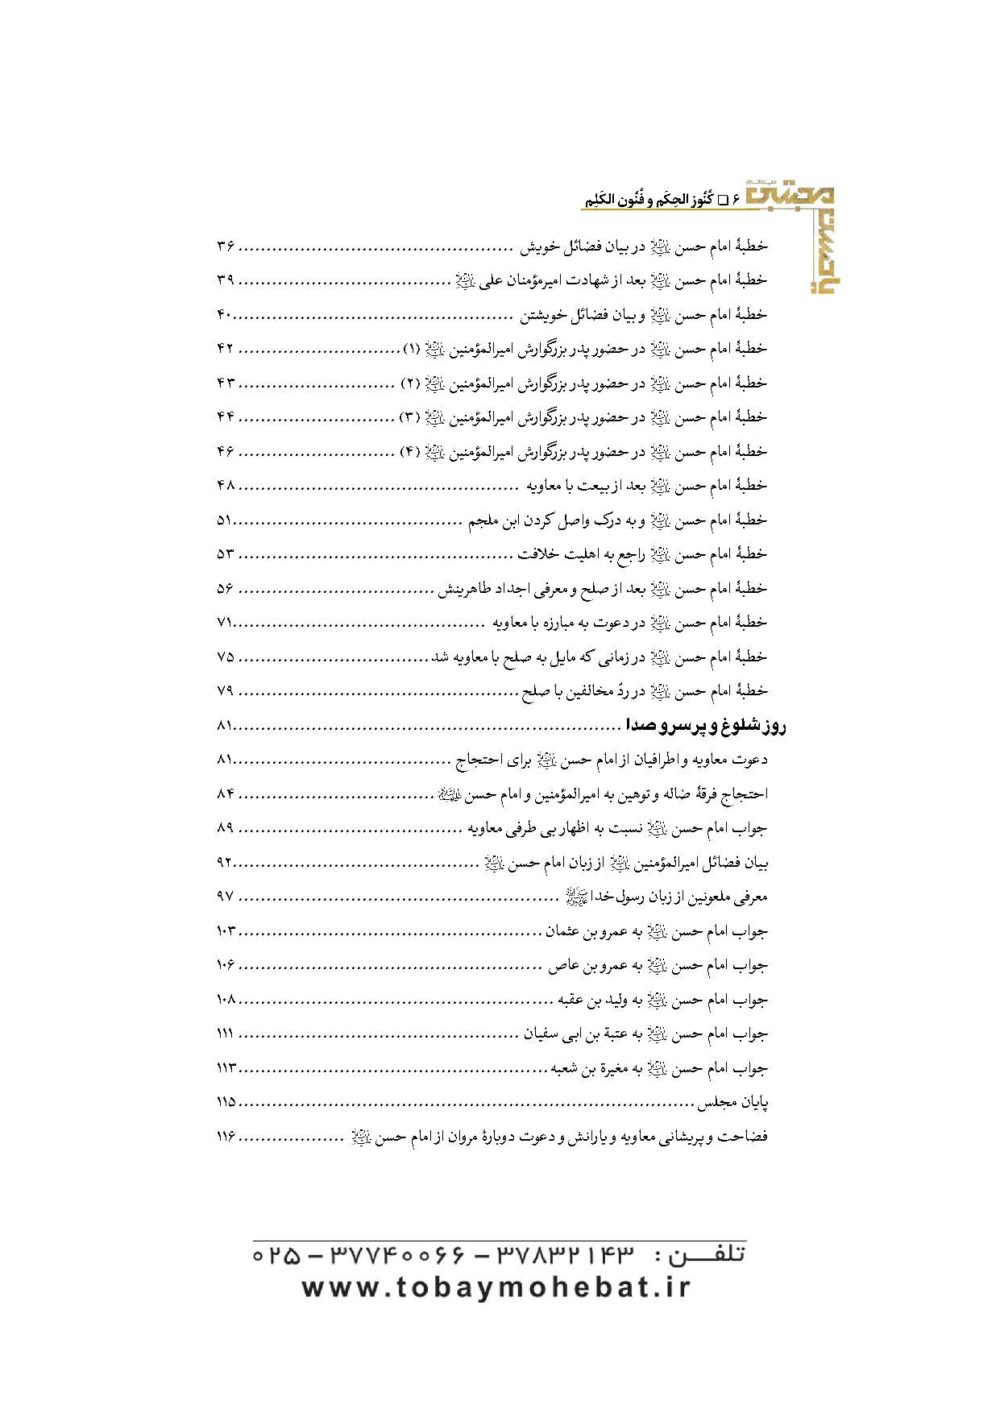 ۶ ❑ كُنُوز الحِكَم و فُنُون الكَلِم
مجتبی
یا حسن
خطبهٔ امام حسن علیه‌السلام در بیان فضائل خویش ................ ۳۶
خطبهٔ امام حسن علیه‌السلام بعد از شهادت امیرمؤمنان علی علیه‌السلام ................ ۳۹
خطبهٔ امام حسن علیه‌السلام و بیان فضائل خویشتن ................ ۴۰
خطبهٔ امام حسن علیه‌السلام در حضور پدر بزرگوارش امیرالمؤمنین علیه‌السلام (۱) ................ ۴۲
خطبهٔ امام حسن علیه‌السلام در حضور پدر بزرگوارش امیرالمؤمنین علیه‌السلام (۲) ................ ۴۳
خطبهٔ امام حسن علیه‌السلام در حضور پدر بزرگوارش امیرالمؤمنین علیه‌السلام (۳) ................ ۴۴
خطبهٔ امام حسن علیه‌السلام در حضور پدر بزرگوارش امیرالمؤمنین علیه‌السلام (۴) ................ ۴۶
خطبهٔ امام حسن علیه‌السلام بعد از بیعت با معاویه ................ ۴۸
خطبهٔ امام حسن علیه‌السلام و به درک واصل کردن ابن ملجم ................ ۵۱
خطبهٔ امام حسن علیه‌السلام راجع به اهلیت خلافت ................ ۵۳
خطبهٔ امام حسن علیه‌السلام بعد از صلح و معرفی اجداد طاهرینش ................ ۵۶
خطبهٔ امام حسن علیه‌السلام در دعوت به مبارزه با معاویه ................ ۷۱
خطبهٔ امام حسن علیه‌السلام در زمانی که مایل به صلح با معاویه شد ................ ۷۵
خطبهٔ امام حسن علیه‌السلام در ردّ مخالفین با صلح ................ ۷۹
روز شلوغ و پر سر و صدا ................ ۸۱
دعوت معاویه و اطرافیان از امام حسن علیه‌السلام برای احتجاج ................ ۸۱
احتجاج فرقهٔ ضاله و توهین به امیرالمؤمنین و امام حسن علیهماالسلام ................ ۸۴
جواب امام حسن علیه‌السلام نسبت به اظهار بی طرفی معاویه ................ ۸۹
بیان فضائل امیرالمؤمنین علیه‌السلام از زبان امام حسن علیه‌السلام ................ ۹۲
معرفی ملعونین از زبان رسول خدا ﷺ ................ ۹۷
جواب امام حسن علیه‌السلام به عمرو بن عثمان ................ ۱۰۳
جواب امام حسن علیه‌السلام به عمرو بن عاص ................ ۱۰۶
جواب امام حسن علیه‌السلام به ولید بن عقبه ................ ۱۰۸
جواب امام حسن علیه‌السلام به عتبة بن ابی سفیان ................ ۱۱۱
جواب امام حسن علیه‌السلام به مغیرة بن شعبه ................ ۱۱۳
پایان مجلس ................ ۱۱۵
فضاحت و پریشانی معاویه و یارانش و دعوت دوبارهٔ مروان از امام حسن علیه‌السلام ................ ۱۱۶
تلفـــن : ۳۷۸۳۲۱۴۳ – ۳۷۷۴۰۰۶۶ – ۰۲۵
www.tobaymohebat.ir